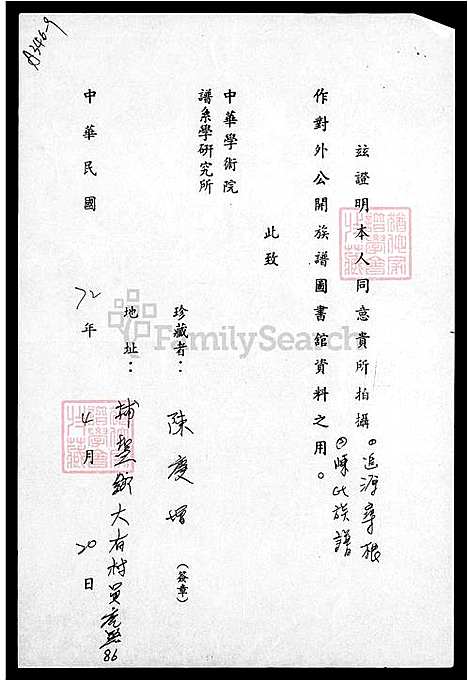 A346-9
茲證明本人同意貴所拍攝。追源尋根
②陳氏族譜
作對外公開族譜圖書館資料之用。
此致
中華學術院
譜系學研究所
珍藏者：陳慶增（簽章）
地址：埔鹽鄉大有村員鹿路86
中華民國72年4月20日
FamilySearch